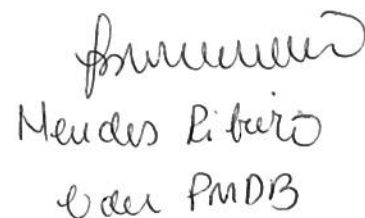 Mendes Ribeiro
Líder PMDB